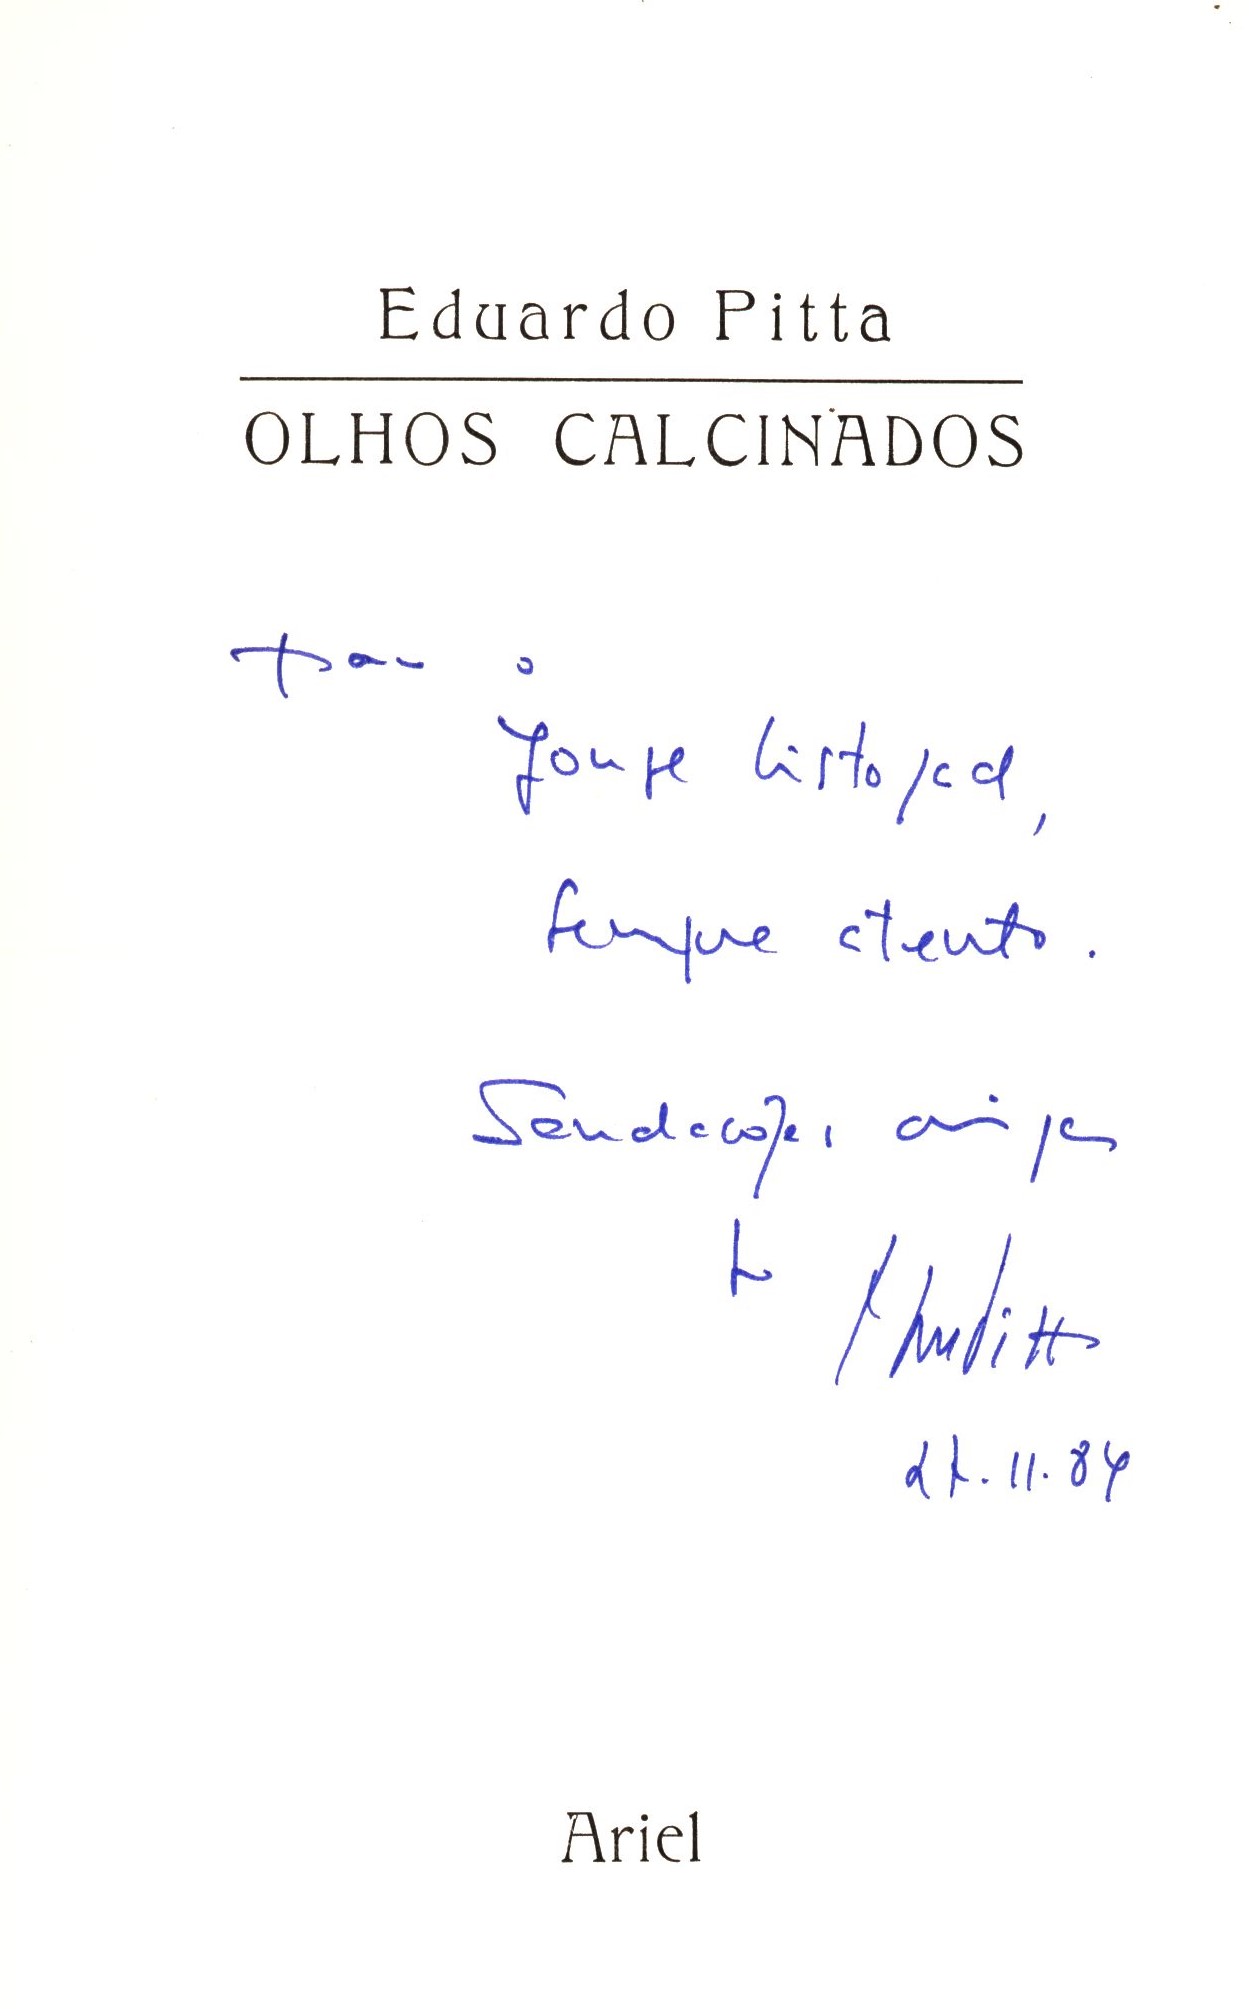 Eduardo Pitta
OLHOS CALCINADOS
para o
Jorge Listopad,
sempre atento.
Saudações amigas
do
27.11.84
Ariel